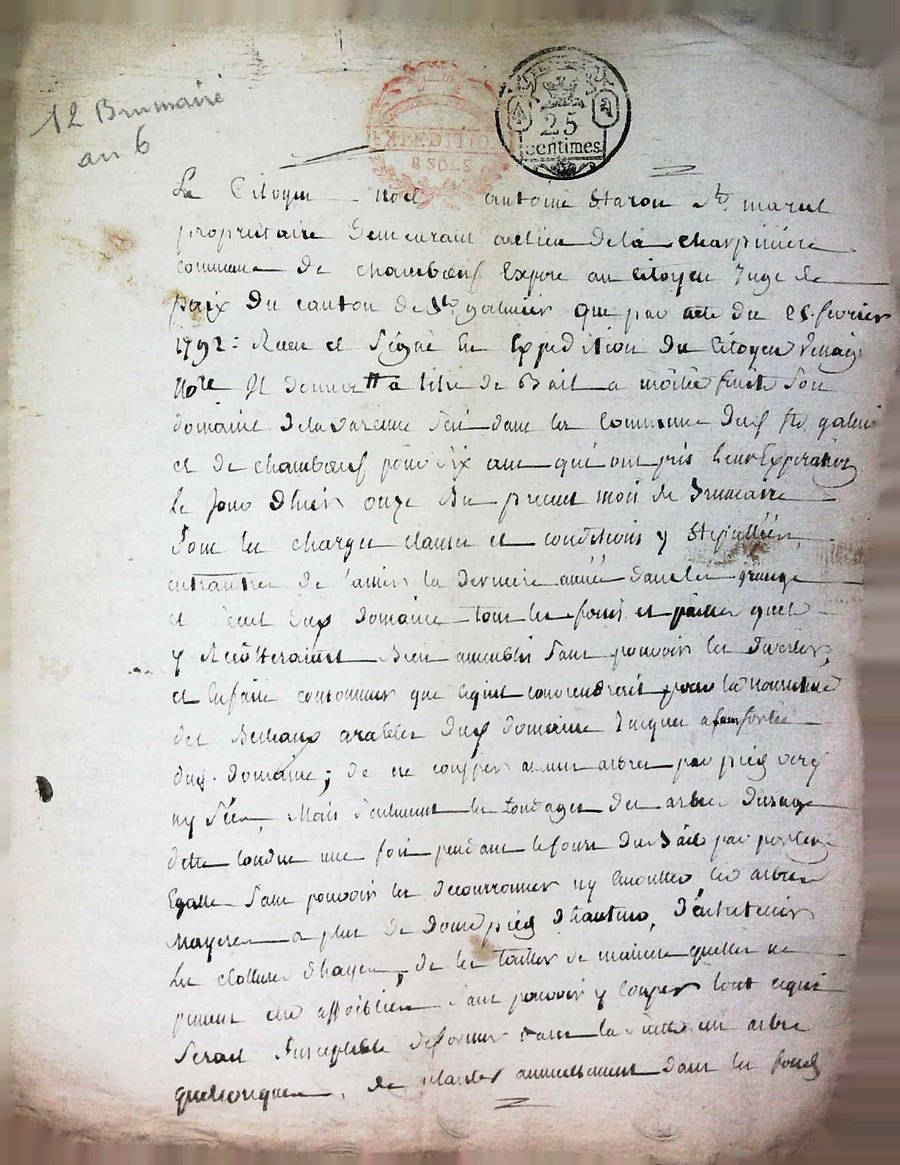 12 Brumaire
an 6
EXPEDITION
8 SOLS
25
centimes
Le Citoyen noël antoine Staron St. marcel
propriétaire demeurant au lieu de la charpinière
commune de chambœuf Expose au Citoyen Juge de
paix du canton de St. galmier que par acte du 25. fevrier
1792: Recu et Signé En Expedition du Citoyen
Nore Il donna a titre de Bail a moitié fruits Son
domaine de la varenne Situé dans les Commune dud. St. galmier
et de chambœuf pour Six ans qui ont pris leur Expiration
Le Jour d'hier onze du present mois de brumaire
Sous les charges clauses et conditions y Stipullées
entrautres de laisser la derniere année dans les grange
et dud domaine tous les foins et pailles quils
y Recolteraient Bien Sans pouvoir les divertir,
et En faire consommer que ce qui conviendrait pour la nourriture
des Bestiaux arables dud domaine Jusques a
dud. domaine; de ne coupper aucun arbres par pied verd
ny Sec, Mais Seulement les tondages des arbres dusage
dette tondus une fois pendant le Cours du Bail par portion
Egalle Sans pouvoir les decouronner ny les arbres
a plus de douze pieds d'hauteur, d'entretenir
Les clotures d'hayes, de les tailler de maniere quelles ne
puissent etre affoiblies Sans pouvoir y couper tout ce qui
Serait Susceptible de former dans la Suitte un arbre
quelconque, de planter annuellement dans les fonds